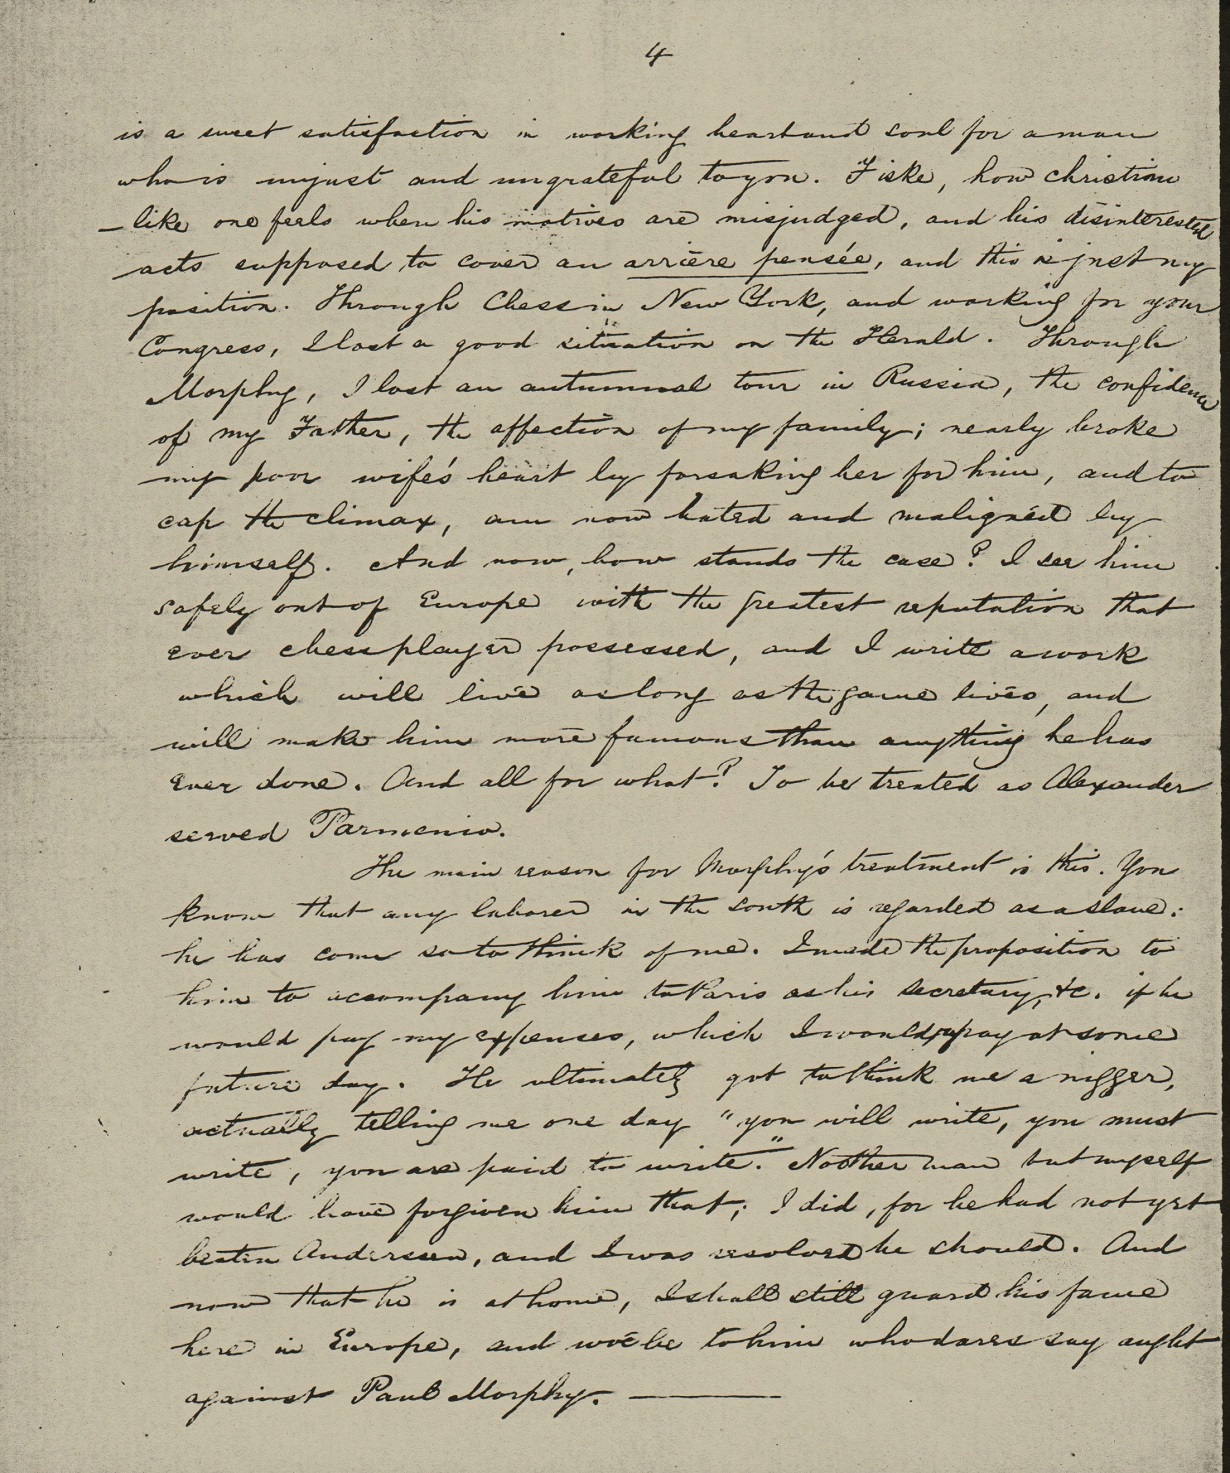 4
is a sweet satisfaction in working heart and soul for a man
who is unjust and ungrateful to you. Fiske, how christian
-like one feels when his motives are misjudged, and his disinterested
acts supposed to cover an arrière pensée, and this is just my
position. Through Chess in New York, and working for your
Congress, I lost a good situation on the Herald. Through
Morphy, I lost an autumnal tour in Russia, the confidence
of my Father, the affection of my family; nearly broke
my poor wife's heart by forsaking her for him, and to
cap the climax, am now hated and maligned by
himself. And now, how stands the case? I see him
safely out of Europe with the greatest reputation that
ever chessplayer possessed, and I write a work
which will live as long as the game lives, and
will make him more famous than anything he has
ever done. And all for what? To be treated as Alexander
served Parmenio.
The main reason for Morphy's treatment is this. You
know that any laborer in the south is regarded as a slave:
he has come so to think of me. I made the proposition to
him to accompany him to Paris as his secretary, &c. if he
would pay my expenses, which I would repay at some
future day. He ultimately got to think me a nigger,
actually telling me one day "you will write, you must
write, you are paid to write." No other man but myself
would have forgiven him that; I did, for he had not yet
beaten Anderssen, and I was resolved he should. And
now that he is at home, I shall still guard his fame
here in Europe, and woe be to him who dares say aught
against Paul Morphy. ———